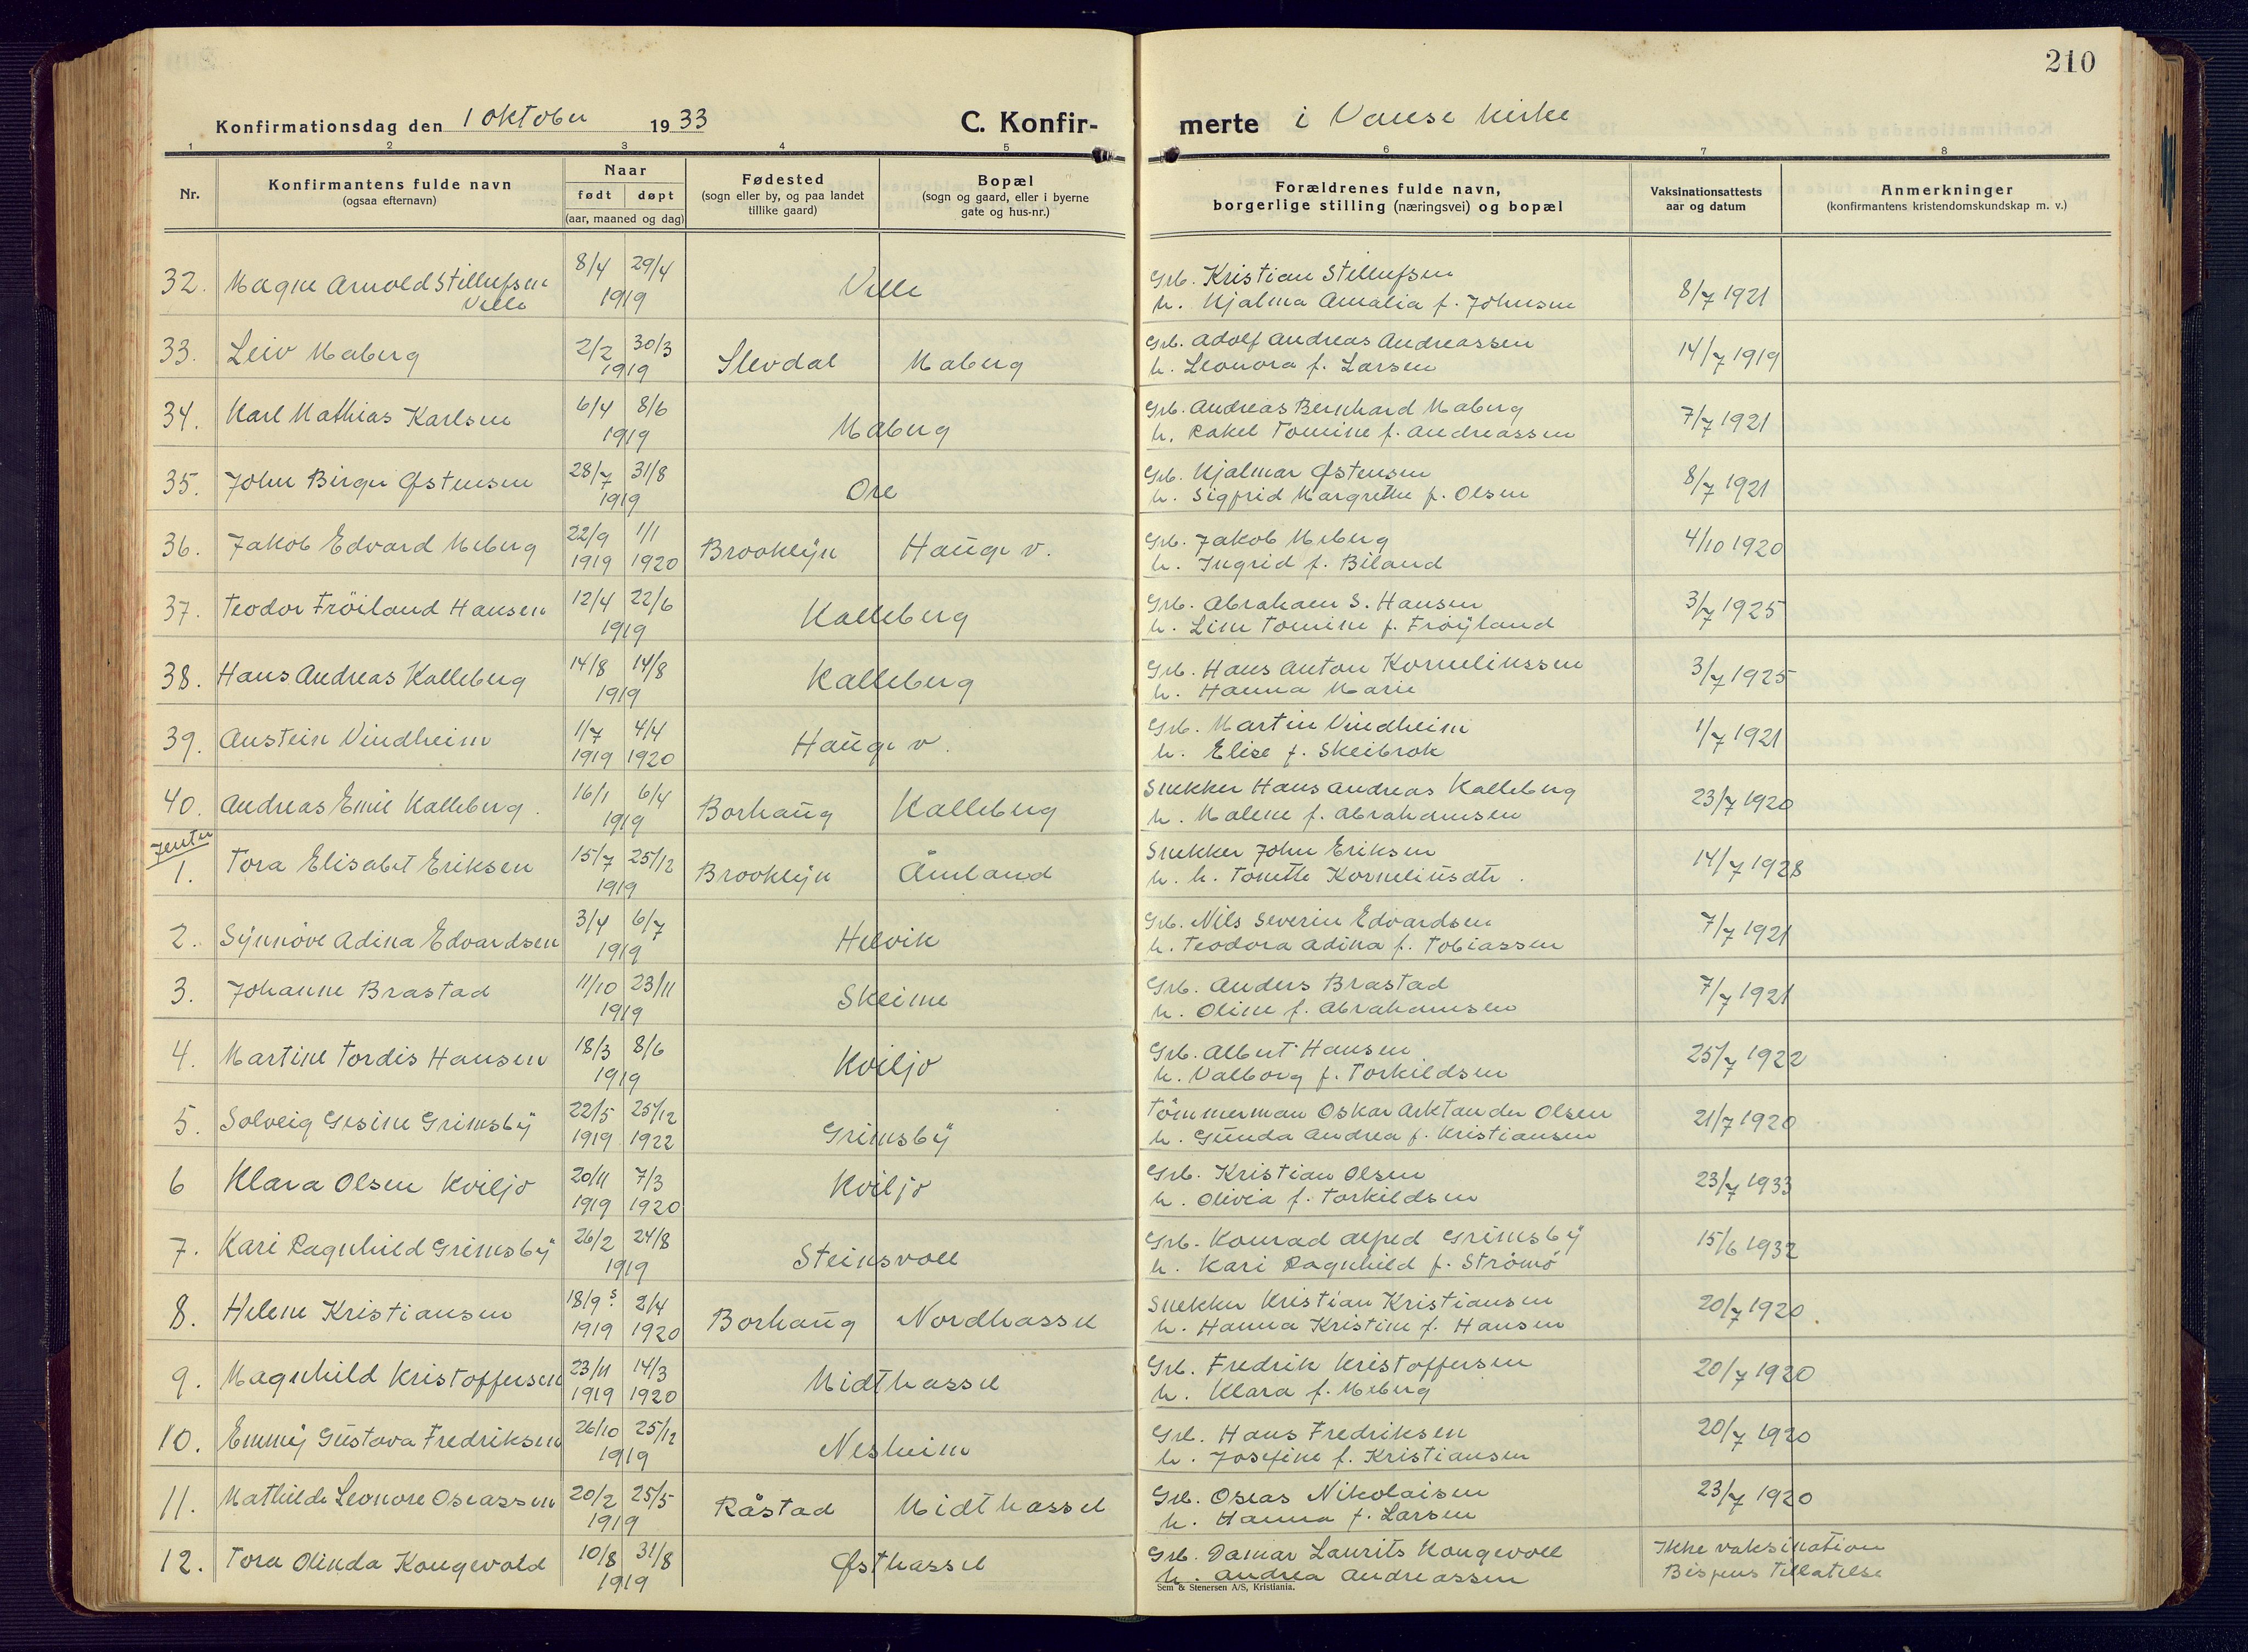 210
Konfirmationsdag den 1 oktober 1933 C. Konfirmerte i Vanse kirke
1 2 3 4 5 6 7 8
Nr.
Konfirmantens fulde navn
(ogsaa efternavn)
Naar
født døpt
(aar, maaned og dag)
Fødested
(sogn eller by, og paa landet
tillike gaard)
Bopæl
(sogn og gaard, eller i byerne
gate og hus-nr.)
Forældrenes fulde navn,
borgerlige stilling (næringsvei) og bopæl
Vaksinationsattests
aar og datum
Anmerkninger
(konfirmantens kristendomskundskap m. v.)
32. Magne Arnold Stellufsen 8/4 29/4 Velle Grb. Kristian Stellufsen 8/7 1921
Velle 1919 h. Hjalma Amalia f. Johnsen
33. Leiv Maberg 2/2 30/3 Slevdal Maberg Grb. Adolf Andreas Andreassen 14/7 1919
1919 h. Leonora f. Larsen
34. Karl Mathias Karlsen 6/4 8/6 Maberg Grb. Andreas Bernhard Maberg 7/7 1921
1919 h. Rakel Tomine f. Andreassen
35. John Birger Østensen 28/7 31/8 Ore Grb. Hjalmar Østensen 8/7 1921
1919 h. Sigfrid Margrethe f. Olsen
36. Jakob Edvard Meberg 22/9 1/1 Brooklyn Hauge v. Grb. Jakob Meberg 4/10 1920
1919 1920 h. Ingrid f. Biland
37. Teodor Fröiland Hansen 12/4 22/6 Kalleberg Grb. Abraham S. Hansen 3/7 1925
1919 h. Line Tomine f. Fröyland
38. Hans Andreas Kalleberg 14/8 14/8 Kalleberg Grb. Hans Anton Korneliussen 3/7 1925
1919 h. Hanna Marie
39. Austein Vindheim 1/7 4/4 Hauge v. Grb. Martin Vindheim 1/7 1921
1919 1920 h. Elise f. Skeibrok
40. Andreas Emil Kalleberg. 16/1 6/4 Borhaug Kalleberg Snekker Hans Andreas Kalleberg 23/7 1920
1919 h. Malene f. Abrahamsen
Jenter
1. Tora Elisabet Eriksen 15/7 25/12 Brooklyn Åmland Snekker John Eriksen 14/7 1928
1919 h. h. Tonette Korneliusdtr.
2. Synnöve Adina Edvardsen 3/4 6/7 Helvik Grb. Nils Severin Edvardsen 7/7 1921
1919 h. Teodora Adina f. Tobiassen
3. Johanne Brastad 11/10 23/11 Skeime Grb. Anders Brastad 7/7 1921
1919 h. Oline f. Abrahamsen
4. Martine Tordis Hansen 18/3 8/6 Kviljo Grb. Albert Hansen 25/7 1922
1919 h. Valborg f. Torkildsen
5. Solveig Gesine Grimsby 22/5 25/12 Grimsby Tömmerman Oskar Arktander Olsen 21/7 1920
1919 1922 h. Gunda Andrea f. Kristiansen
6 Klara Olsen Kviljo 20/11 7/3 Kviljo Grb. Kristian Olsen 23/7 1933
1919 1920 h. Olivia f. Torkildsen
7. Kari Ragnhild Grimsby 26/2 24/8 Steinsvoll Grb. Konrad Alfred Grimsby 15/6 1932
1919 h. Kari Ragnhild f. Strömö
8. Helene Kristiansen 18/9 2/4 Borhaug Nordhassel Snekker Kristian Kristiansen 20/7 1920.
1919 1920 h. Hanna Kristine f. Hansen
9. Magnhild Kristoffersen 23/11 14/3 Midthassel Grb. Fredrik Kristoffersen 20/7 1920
1919 1920 h. Klara f. Meberg
10. Emmy Gustava Fredriksen 26/10 25/12 Nesheim Grb. Hans Fredriksen 20/7 1920
1919 h. Josefine f. Kristiansen
11. Mathilde Leonore Oseassen 20/2 25/5 Råstad Midthassel Grb. Oseas Nikolaisen 23/7 1920
1919 h. Hanna f. Larsen
12. Tora Olinda Kongevold 10/8 31/8 Østhassel Grb. Damar Laurits Kongevoll Ikke vaksination
1919 h. Andrea Andreassen Bispens Tillatelse
Sem & Stenersen A/S, Kristiania.